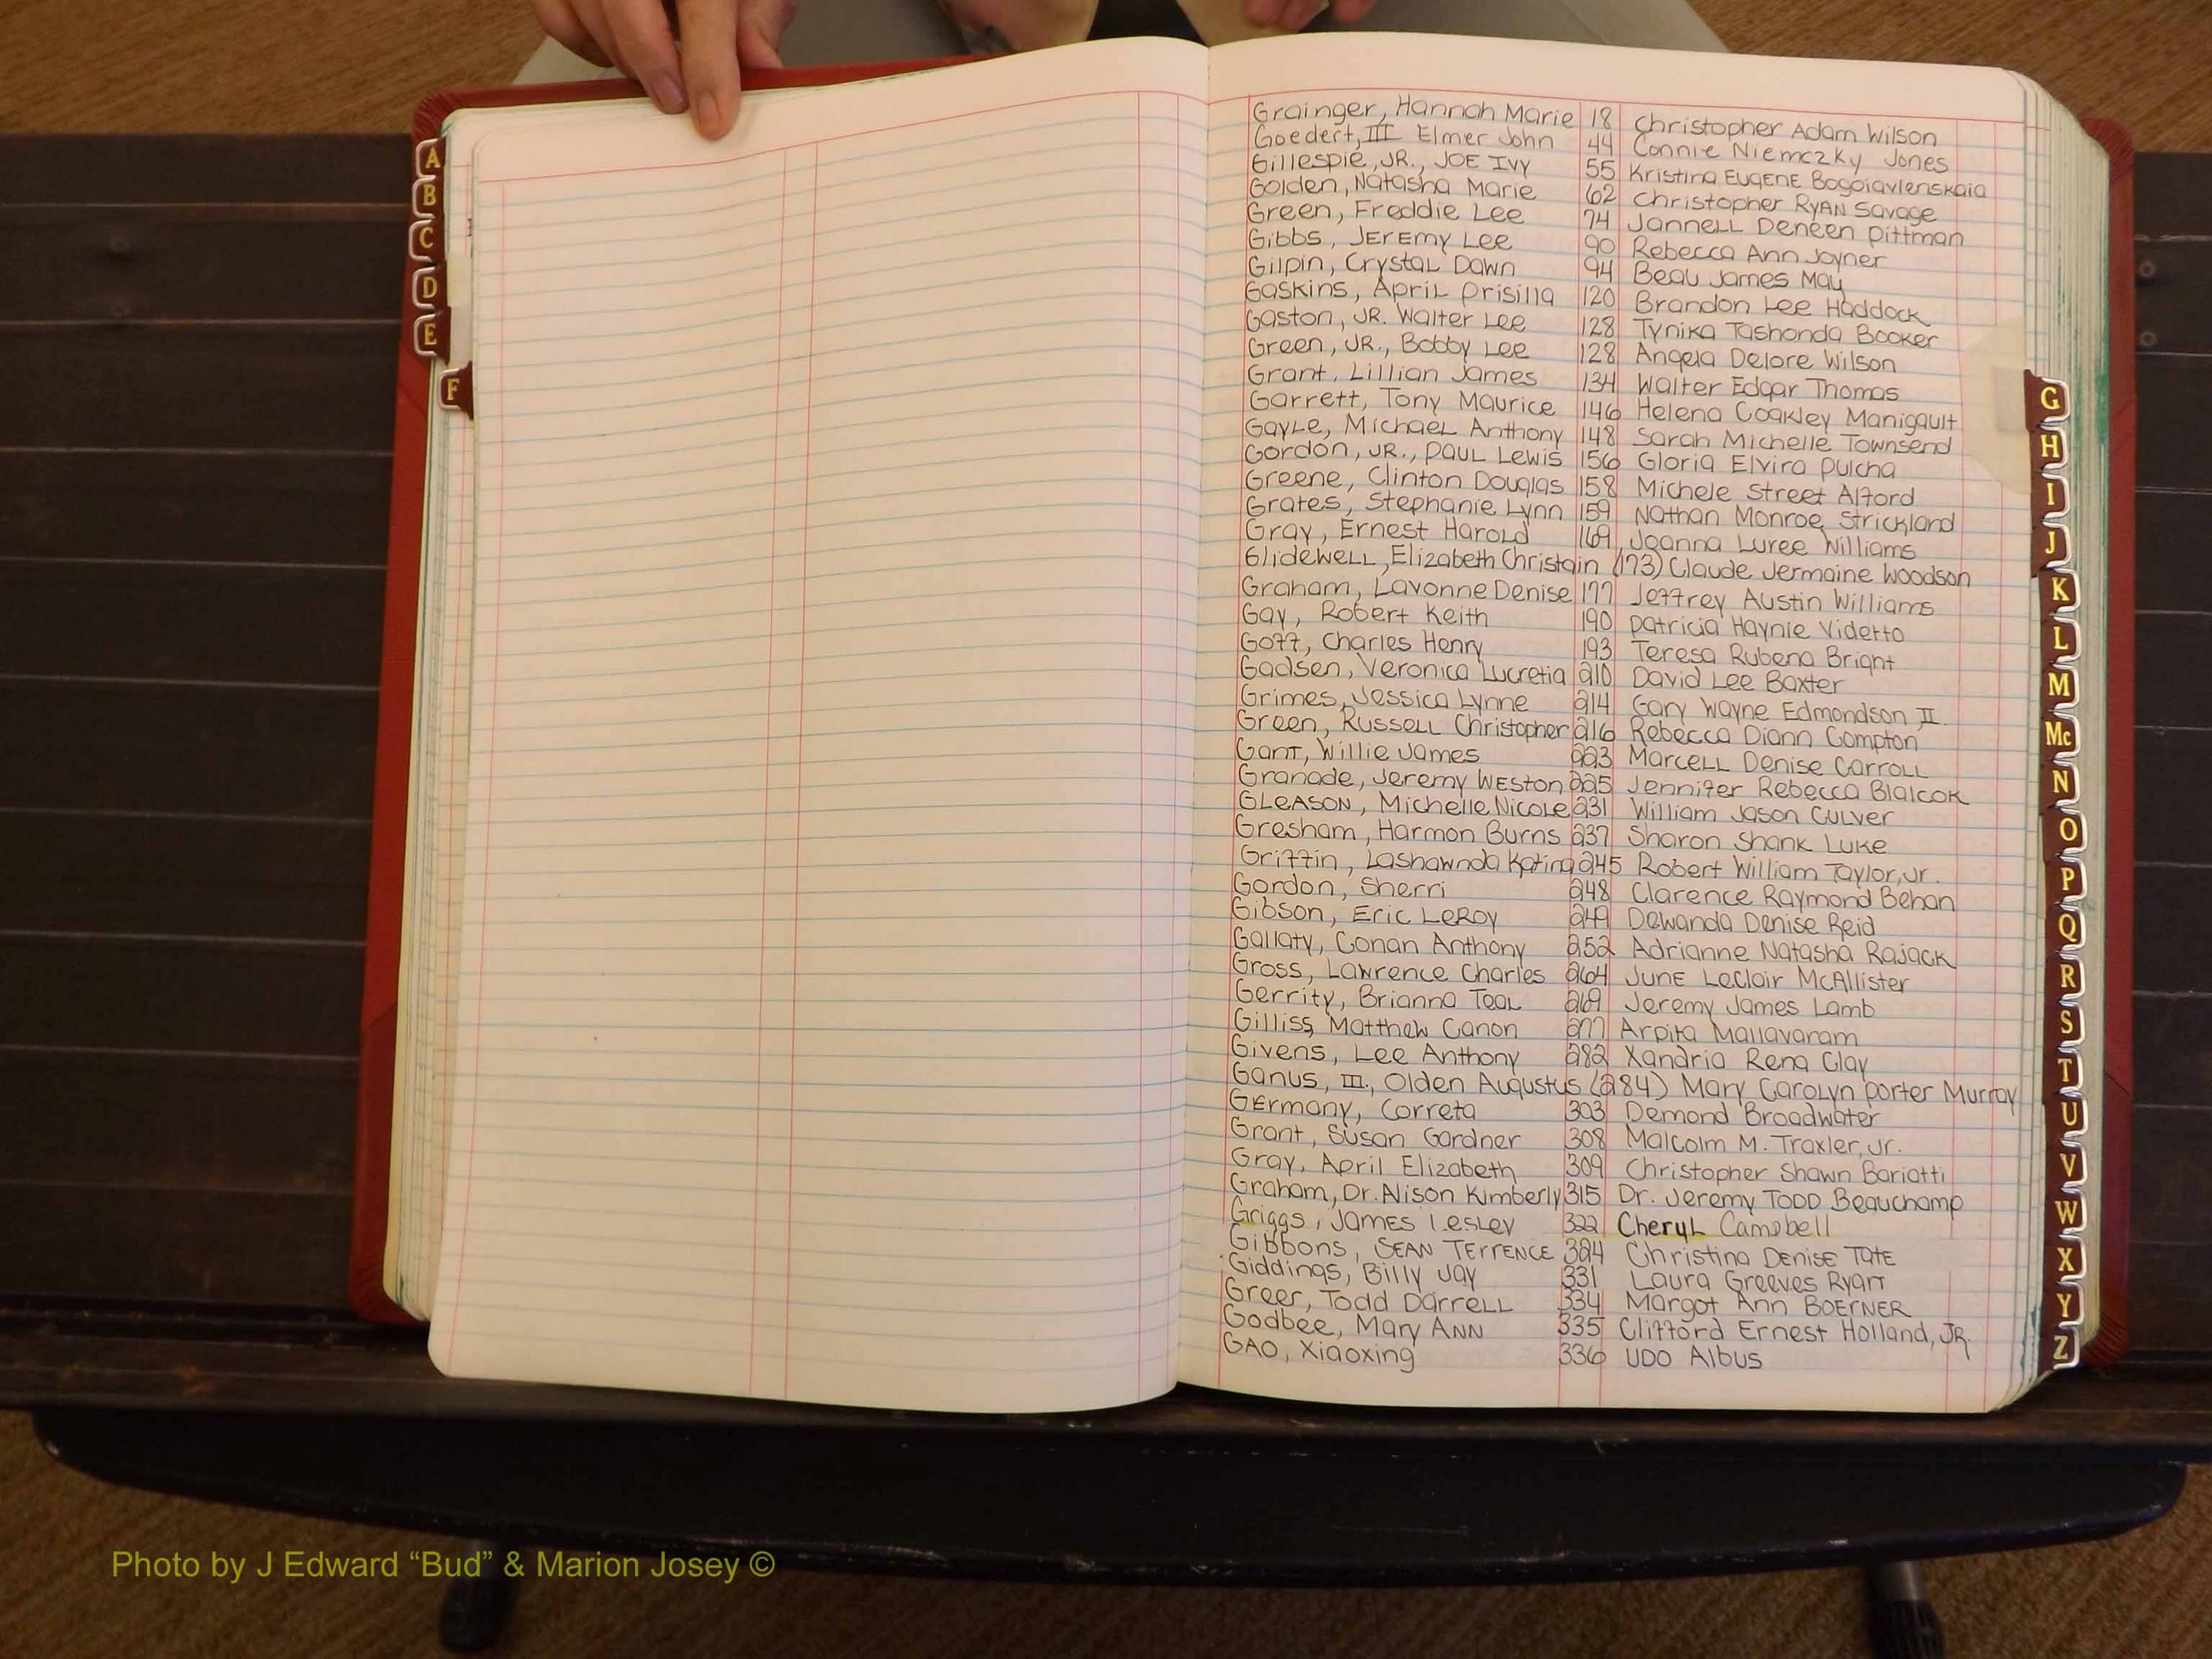 A
B
C
D
E
F
Grainger, Hannah Marie 18 Christopher Adam Wilson
Goedert, III Elmer John 44 Connie Niemczky Jones
Gillespie, JR., JOE IVY 55 Kristina EUGENE Bogoiavlenskaia
Golden, Natasha Marie 62 Christopher RYAN Savage
Green, Freddie Lee 74 JanneLL Deneen Pittman
Gibbs, JEREMY Lee 90 Rebecca Ann Joyner
Gilpin, CrystaL Dawn 94 Beau James May
Gaskins, ApriL Prisilla 120 Brandon Lee Haddock
Gaston, JR. Walter Lee 128 Tynika Tashonda Booker
Green, JR., Bobby Lee 128 Angela Delore Wilson
Grant, Lillian James 134 Walter Edgar Thomas
Garrett, Tony Maurice 146 Helena Coakley Manigault
GayLe, MichaeL Anthony 148 Sarah Michelle Townsend
Gordon, JR., PAUL Lewis 156 Gloria Elvira Pulcha
Greene, Clinton Douglas 158 Michele Street Alford
Grates, Stephanie Lynn 159 Nathan Monroe Strickland
Gray, Ernest HaroLd 169 Joanna Luree Williams
GlideweLL, Elizabeth Christain (173) Claude Jermaine Woodson
Graham, Lavonne Denise 177 Jeffrey Austin Williams
Gay, Robert Keith 190 Patricia Haynie Videtto
Goff, Charles Henry 193 Teresa Rubena Bright
Gadsen, Veronica Lucretia 210 David Lee Baxter
Grimes, Jessica Lynne 214 Gary Wayne Edmondson II.
Green, RusseLL Christopher 216 Rebecca Diann Compton
Gant, Willie James 223 MarceLL Denise CarroLL
Granade, Jeremy Weston 225 Jennifer Rebecca Blalcok
GLEASON, Michelle Nicole 231 William Jason CuLver
Gresham, Harmon Burns 237 Sharon Shank Luke
Griffin, Lashawnda Katina 245 Robert William Taylor, Jr.
Gordon, Sherri 248 Clarence Raymond Behan
Gibson, Eric LeRoy 249 Dewanda Denise Reid
Gallaty, Conan Anthony 252 Adrianne Natasha Rajack
Gross, Lawrence Charles 264 June LeClair McAllister
Gerrity, Brianna TeaL 269 Jeremy James Lamb
Gilliss, Matthew Canon 277 Arpita Mallavaram
Givens, Lee Anthony 282 Xandria Rena Clay
Ganus, III., Olden Augustus (284) Mary CaroLyn Porter Murray
GErmany, Correta 303 Demond Broadwater
Grant, Susan Gardner 308 Malcolm M. Traxler, Jr.
Gray, April Elizabeth 309 Christopher Shawn Bariatti
Graham, Dr. Alison Kimberly 315 Dr. Jeremy TODD Beauchamp
Griggs, James LesLey 322 CheryL Campbell
Gibbons, SEAN TERRENCE 324 Christina DENISE TATE
Giddings, Billy Jay 331 Laura Greeves Ryan
Greer, Todd DarreLL 334 Margot Ann BOERNER
Godbee, Mary ANN 335 Clifford Ernest Holland, JR.
GAO, Xiaoxing 336 UDO Albus
G
H
I
J
K
L
M
Mc
N
O
P
Q
R
S
T
U
V
W
X
Y
Z
Photo by J Edward “Bud” & Marion Josey ©